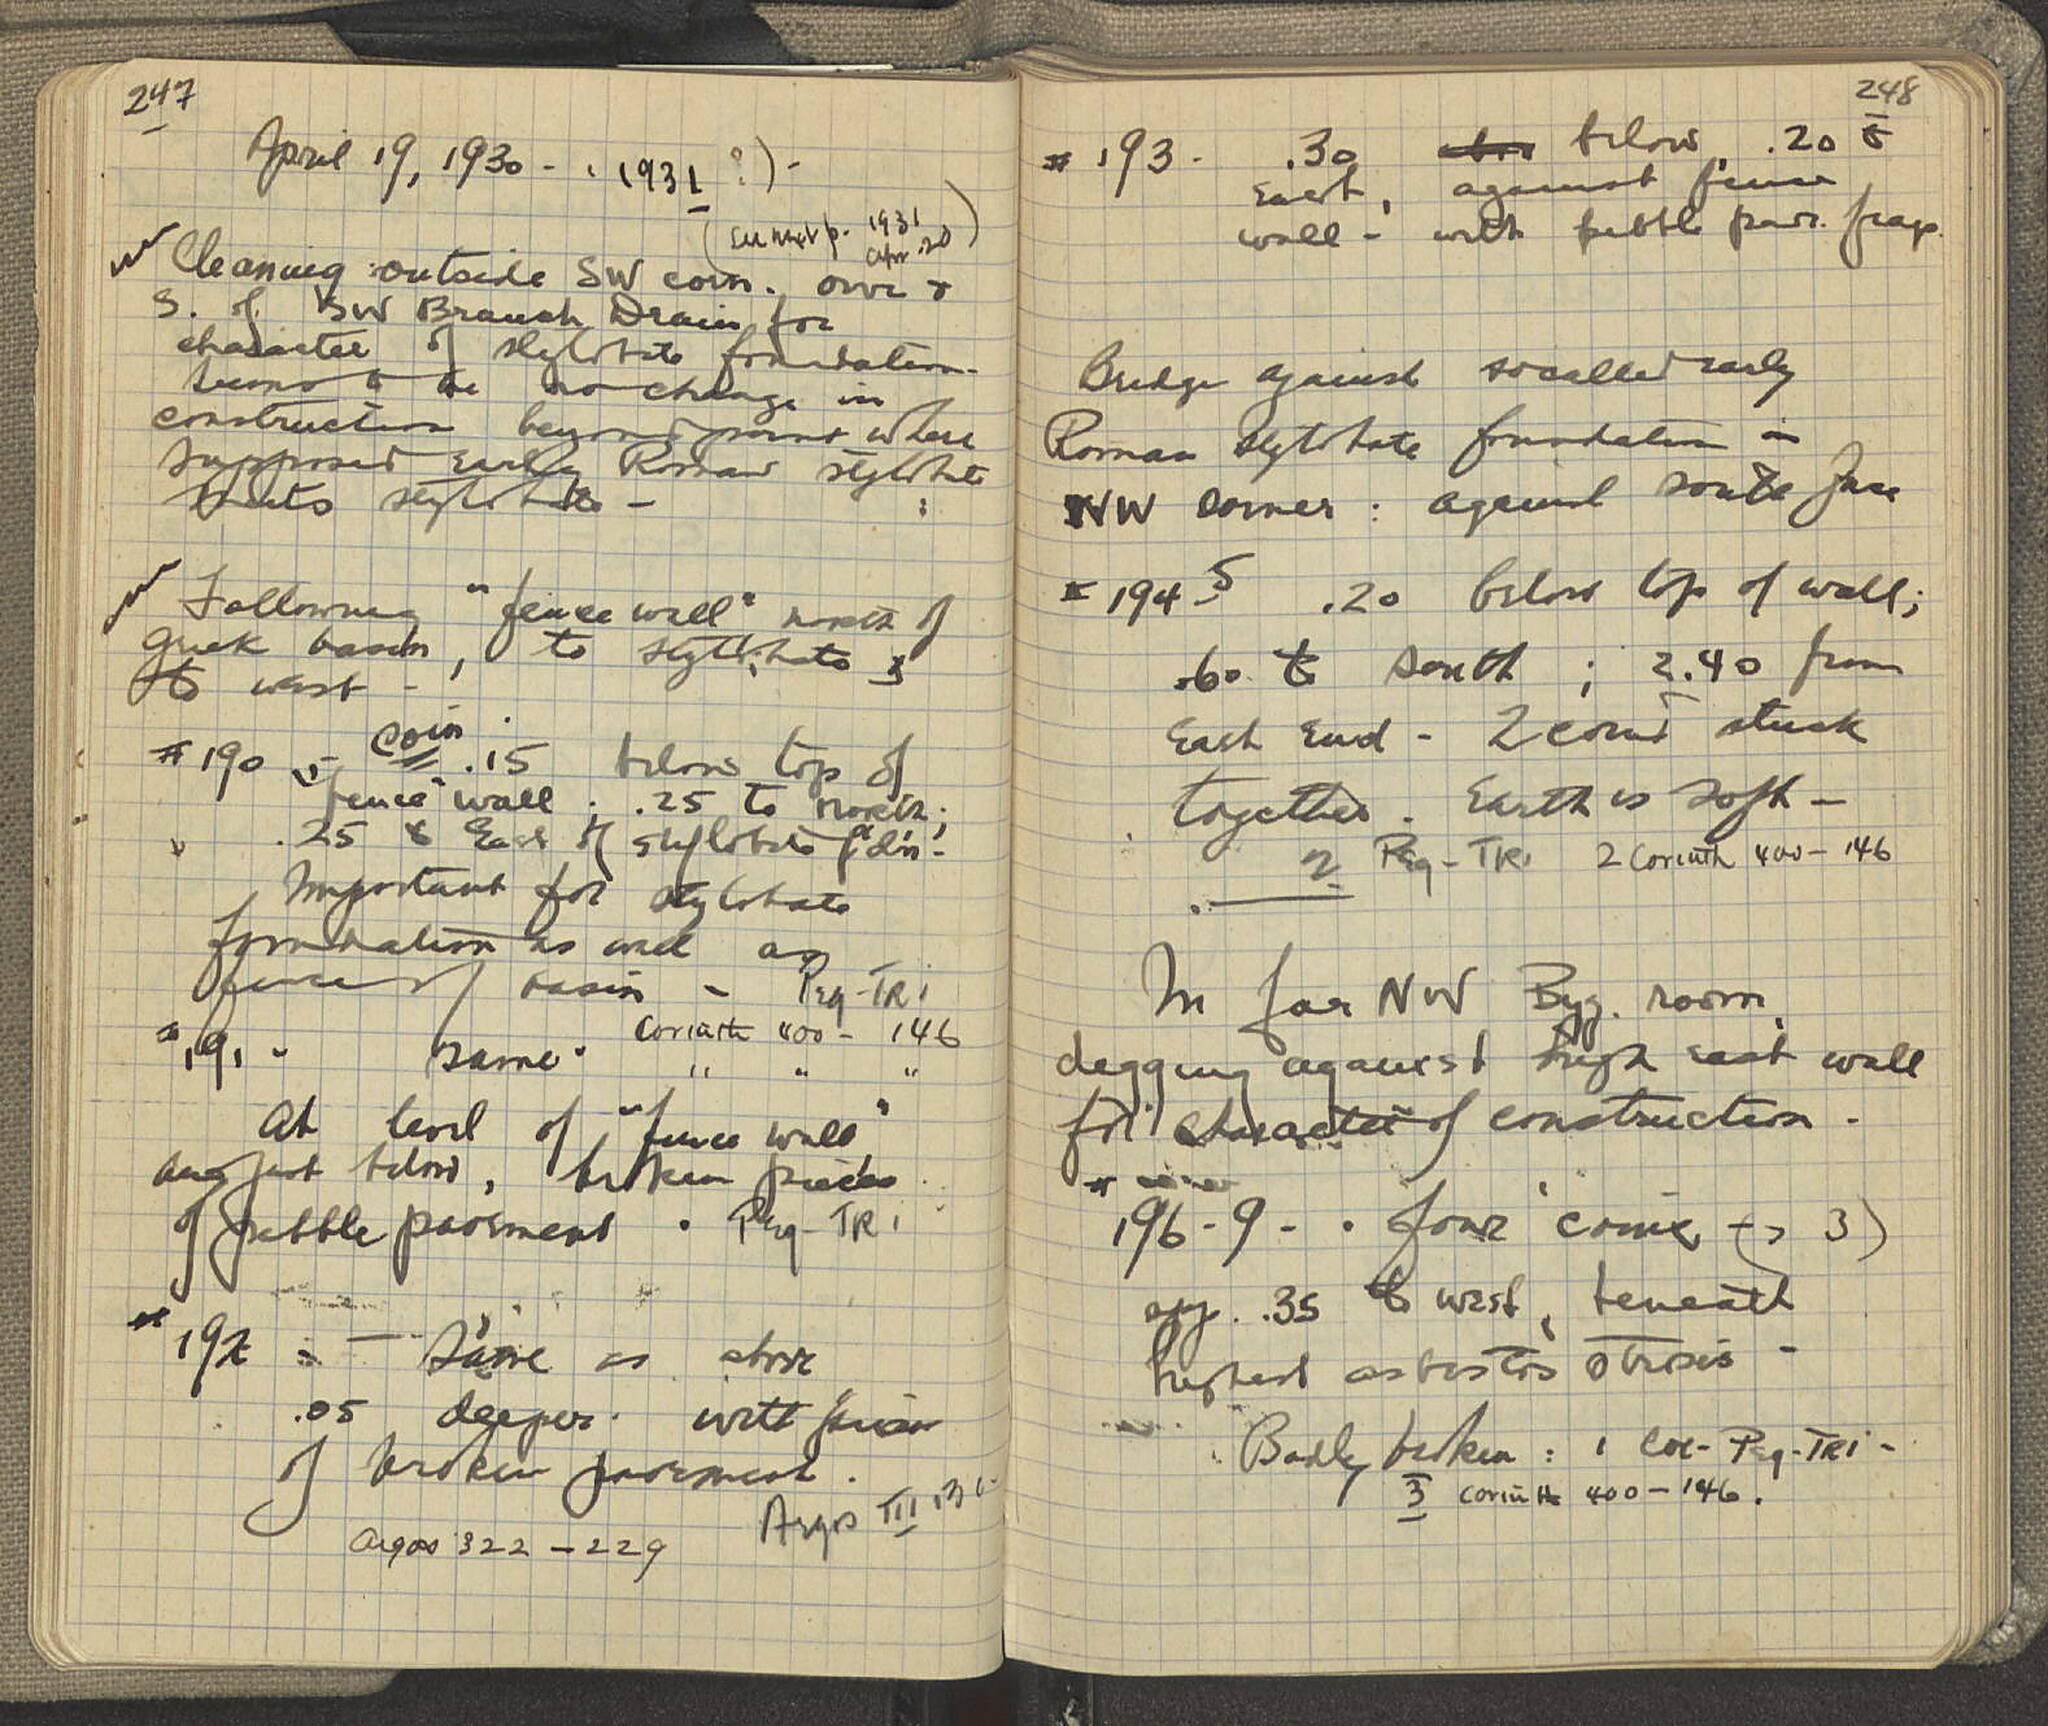 247
April 19, 1930 - (1931 ?) -
(See next p. 1931
Apr. 20)
Cleaning outside SW corn. over &
S. of SW Branch Drain for
character of stylobate foundation.
Seems to be no change in
construction beyond point where
supposed early Roman stylobate
meets stylobate -
Following "fence wall" north of
Greek basin, to stylobate
to west -
coin
# 190 - .15 below top of
"fence" wall; .25 to north;
.25 to East of stylobate f'd'n.
Important for stylobate
foundation as well as
fence of basin - Peg-TRI
Corinth 400 - 146
# 191 - Same. " " "
At level of "fence wall"
and just below, broken pieces
of pebble pavement. Peg-TRI
# 192 - Same as above
.05 deeper. with
of broken pavement.
Argos III
Argos 322 - 229
248
# 193 - .30 below, .20 to
East, against fence
wall - with pebble pave. frag.
Bridge against so called early
Roman stylobate foundation in
NW corner: against south face
# 194-5 .20 below top of wall;
.60 to south; 2.40 from
East End - 2 coins stuck
together. Earth is soft -
2 Peg-TRI 2 Corinth 400 - 146
In far NW Byz. room,
digging against high east wall
for character of construction -
#
196-9 - four coins (> 3)
.35 to west, beneath
highest asbestos
Badly broken: 1 Cor- Peg-TRI -
3 Corinth 400 - 146.